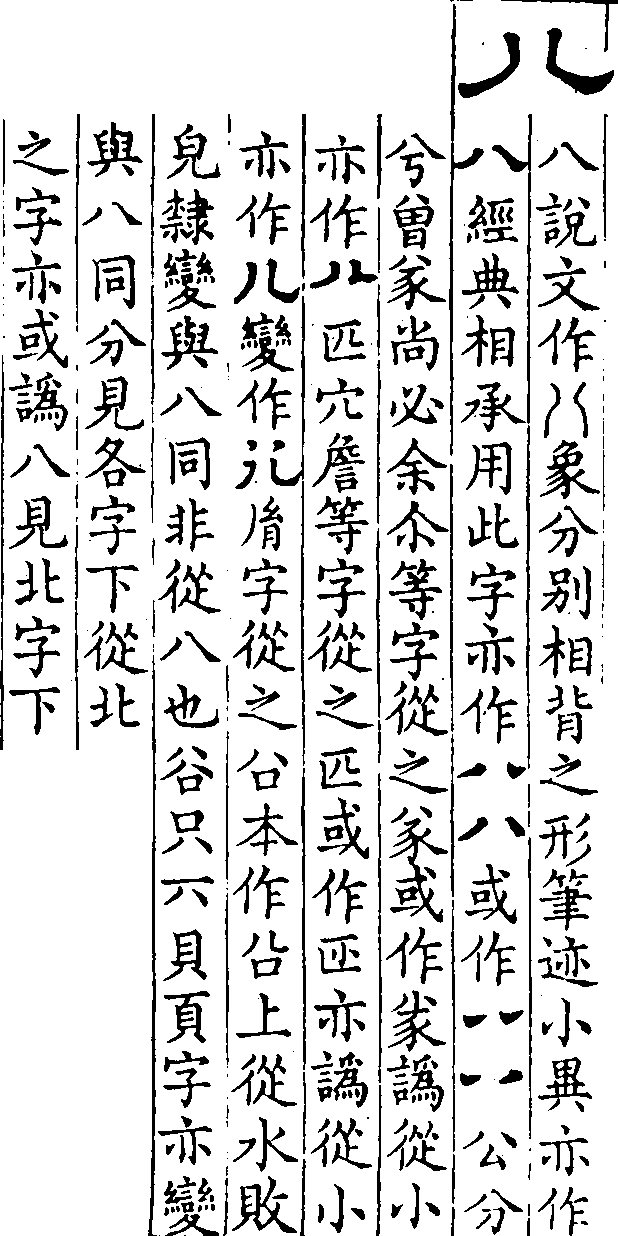 八
八說文作八象分别相背之形筆迹小異亦作
八經典相承用此字亦作八八或作公分
兮曾㒸尚必余尒等字從之㒸或作㒸譌從小
亦作匹穴詹等字從之匹或作亦譌從小
亦作儿變作字從之㕣本作㕣上從水敗
皃隸變與八同非從八也谷只六貝頁字亦變
與八同分見各字下從北
之字亦或譌八見北字下